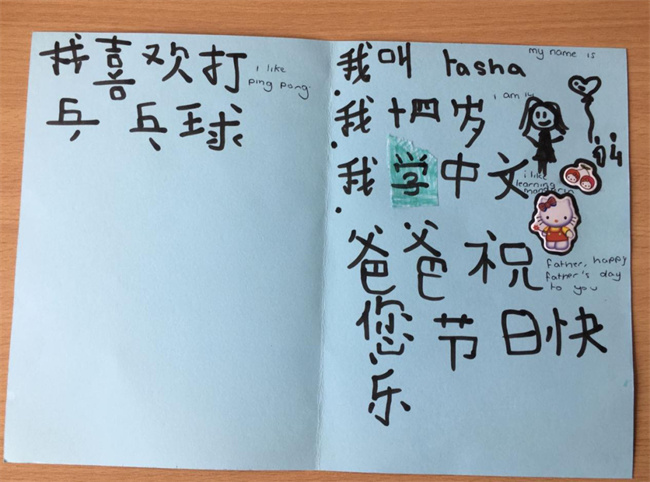 我喜欢打
i like
ping pong
乒乓球
我叫 rasha
my name is
我十四岁
i am 14
14
我学中文
i like
learning
mandarin
爸爸祝
father, happy
father's day
to you
您节日快
乐